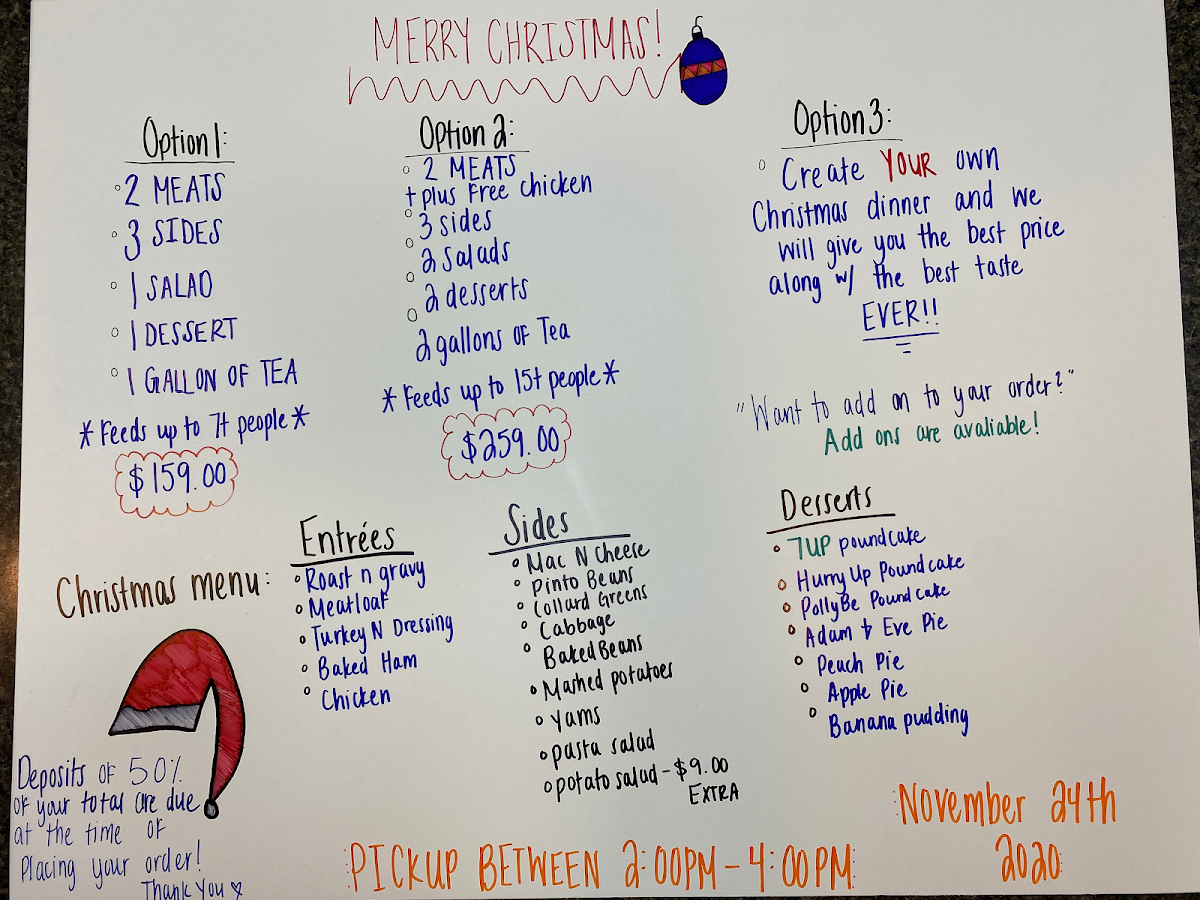 MERRY CHRISTMAS!
Option 1:
2 MEATS
3 SIDES
1 SALAD
1 DESSERT
1 GALLON OF TEA
*Feeds up to 7+ people*
$159.00
Option 2:
2 MEATS
+ plus Free chicken
3 sides
2 Salads
2 desserts
2 gallons OF Tea
*Feeds up to 15+ people*
$259.00
Option 3:
Create YOUR own
Christmas dinner and we
will give you the best price
along w/ the best taste
EVER!!
"Want to add on to your order?"
Add ons are avaliable!
Christmas menu:
Entrées
Roast n gravy
Meatloaf
Turkey N Dressing
Baked Ham
Chicken
Sides
Mac N Cheese
Pinto Beans
Collard Greens
Cabbage
Baked Beans
Mashed potatoes
Yams
pasta salad
potato salad - $9.00
EXTRA
Desserts
7UP poundcake
Hurry Up Poundcake
PollyBe Poundcake
Adam & Eve Pie
Peach Pie
Apple Pie
Banana pudding
Deposits OF 50%
OF your total are due
at the time OF
Placing your order!
Thank You
PICKUP BETWEEN 2:00PM - 4:00PM
November 24th
2020